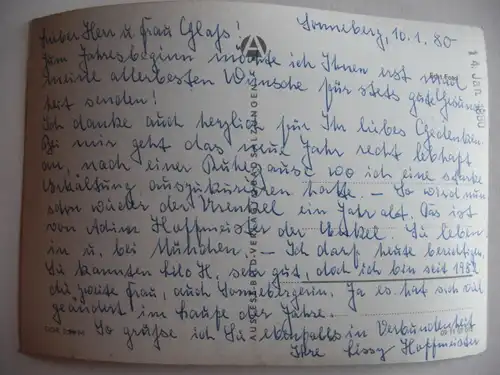 Sonneberg, 10.1.80
Lieber Herr u. Frau Glaß!
Zum Jahresbeginn möchte ich Ihnen erst mal
meine allerbesten Wünsche für stets gute Gesund-
heit senden!
Ich danke auch herzlich für Ihr liebes Gedenken.
Bei mir geht das neue Jahr recht lebhaft
an, nach einer Ruhepause, wo ich eine starke
Erkältung auszukurieren hatte. – So wird nun
schon wieder der Urenkel ein Jahr alt. Das ist
von Hoffmeister der Enkel. Sie leben
in u. bei München. – Ich darf heute berichtigen,
Sie kannten Lilo H. sehr gut, doch ich bin seit
die zweite Frau, auch Sonnebergerin. Ja es hat sich viel
geändert im Laufe der Jahre.
So grüße ich Sie ebenfalls in Verbundenheit
Ihre Lissy Hoffmeister